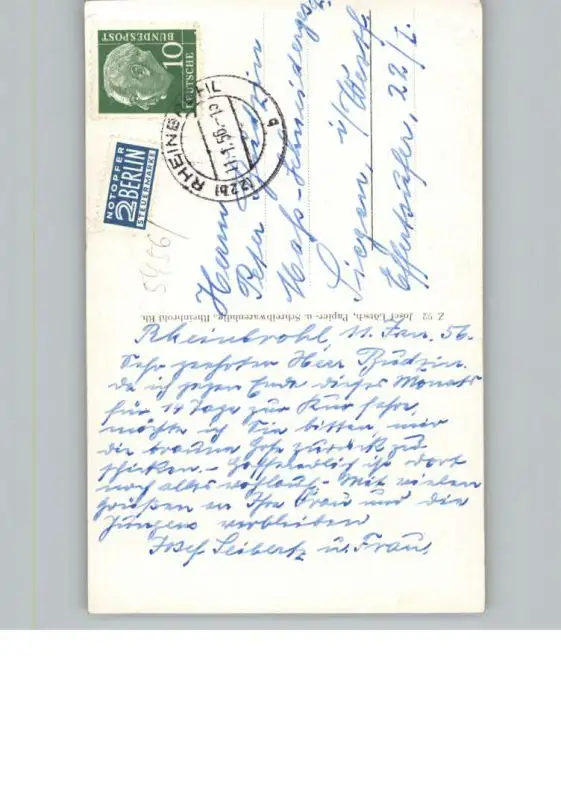 DEUTSCHE
BUNDESPOST
10
NOTOPFER
2 BERLIN
STEUERMARKE
(22b) RHEINBROHL
11.1.56
b
5456
Herrn
Peter Budzin
Maß-Schneiderges.
Siegen, i/Westf.
Effertsufer, 22/I.
Z 92 Josef Lötsch, Papier- u. Schreibwarenhdlg., Rheinbrohl Rh.
Rheinbrohl, 11. Jan. 56.
Sehr geehrter Herr Budzin.
da ich gegen Ende dieses Monats
für 14 Tage zur Kur fahre,
möchte ich Sie bitten, mir
die braune Hose zurück zu
schicken. - Hoffendlich ist dort
noch alles wohlauf. - Mit vielen
Grüßen an Ihre Frau und die
Jungens verbleiben
Josef Seibertz u. Frau.